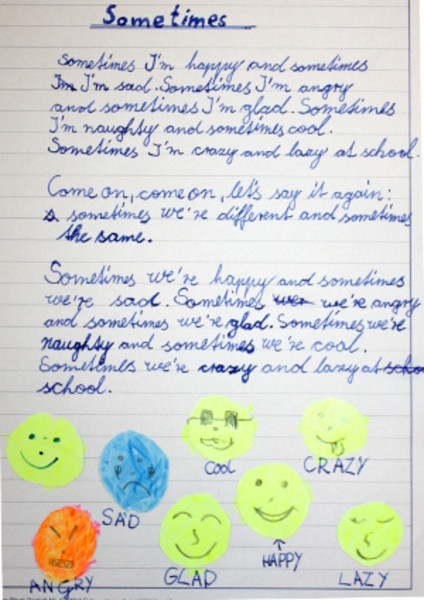 Sometimes
Sometimes I'm happy and sometimes
I'm I'm sad. Sometimes I'm angry
and sometimes I'm glad. Sometimes
I'm naughty and sometimes cool.
Sometimes I'm crazy and lazy at school.
Come on, come on, let's say it again:
s sometimes we're different and sometimes
the same.
Sometimes we're happy and sometimes
we're sad. Sometimes wer we're angry
and sometimes we're glad. Sometimes we're
naughty and sometimes we're cool.
Sometimes we're crazy and lazy at schoo
school.
Cool
CRAZY
SAD
HAPPY
ANGRY
GLAD
LAZY